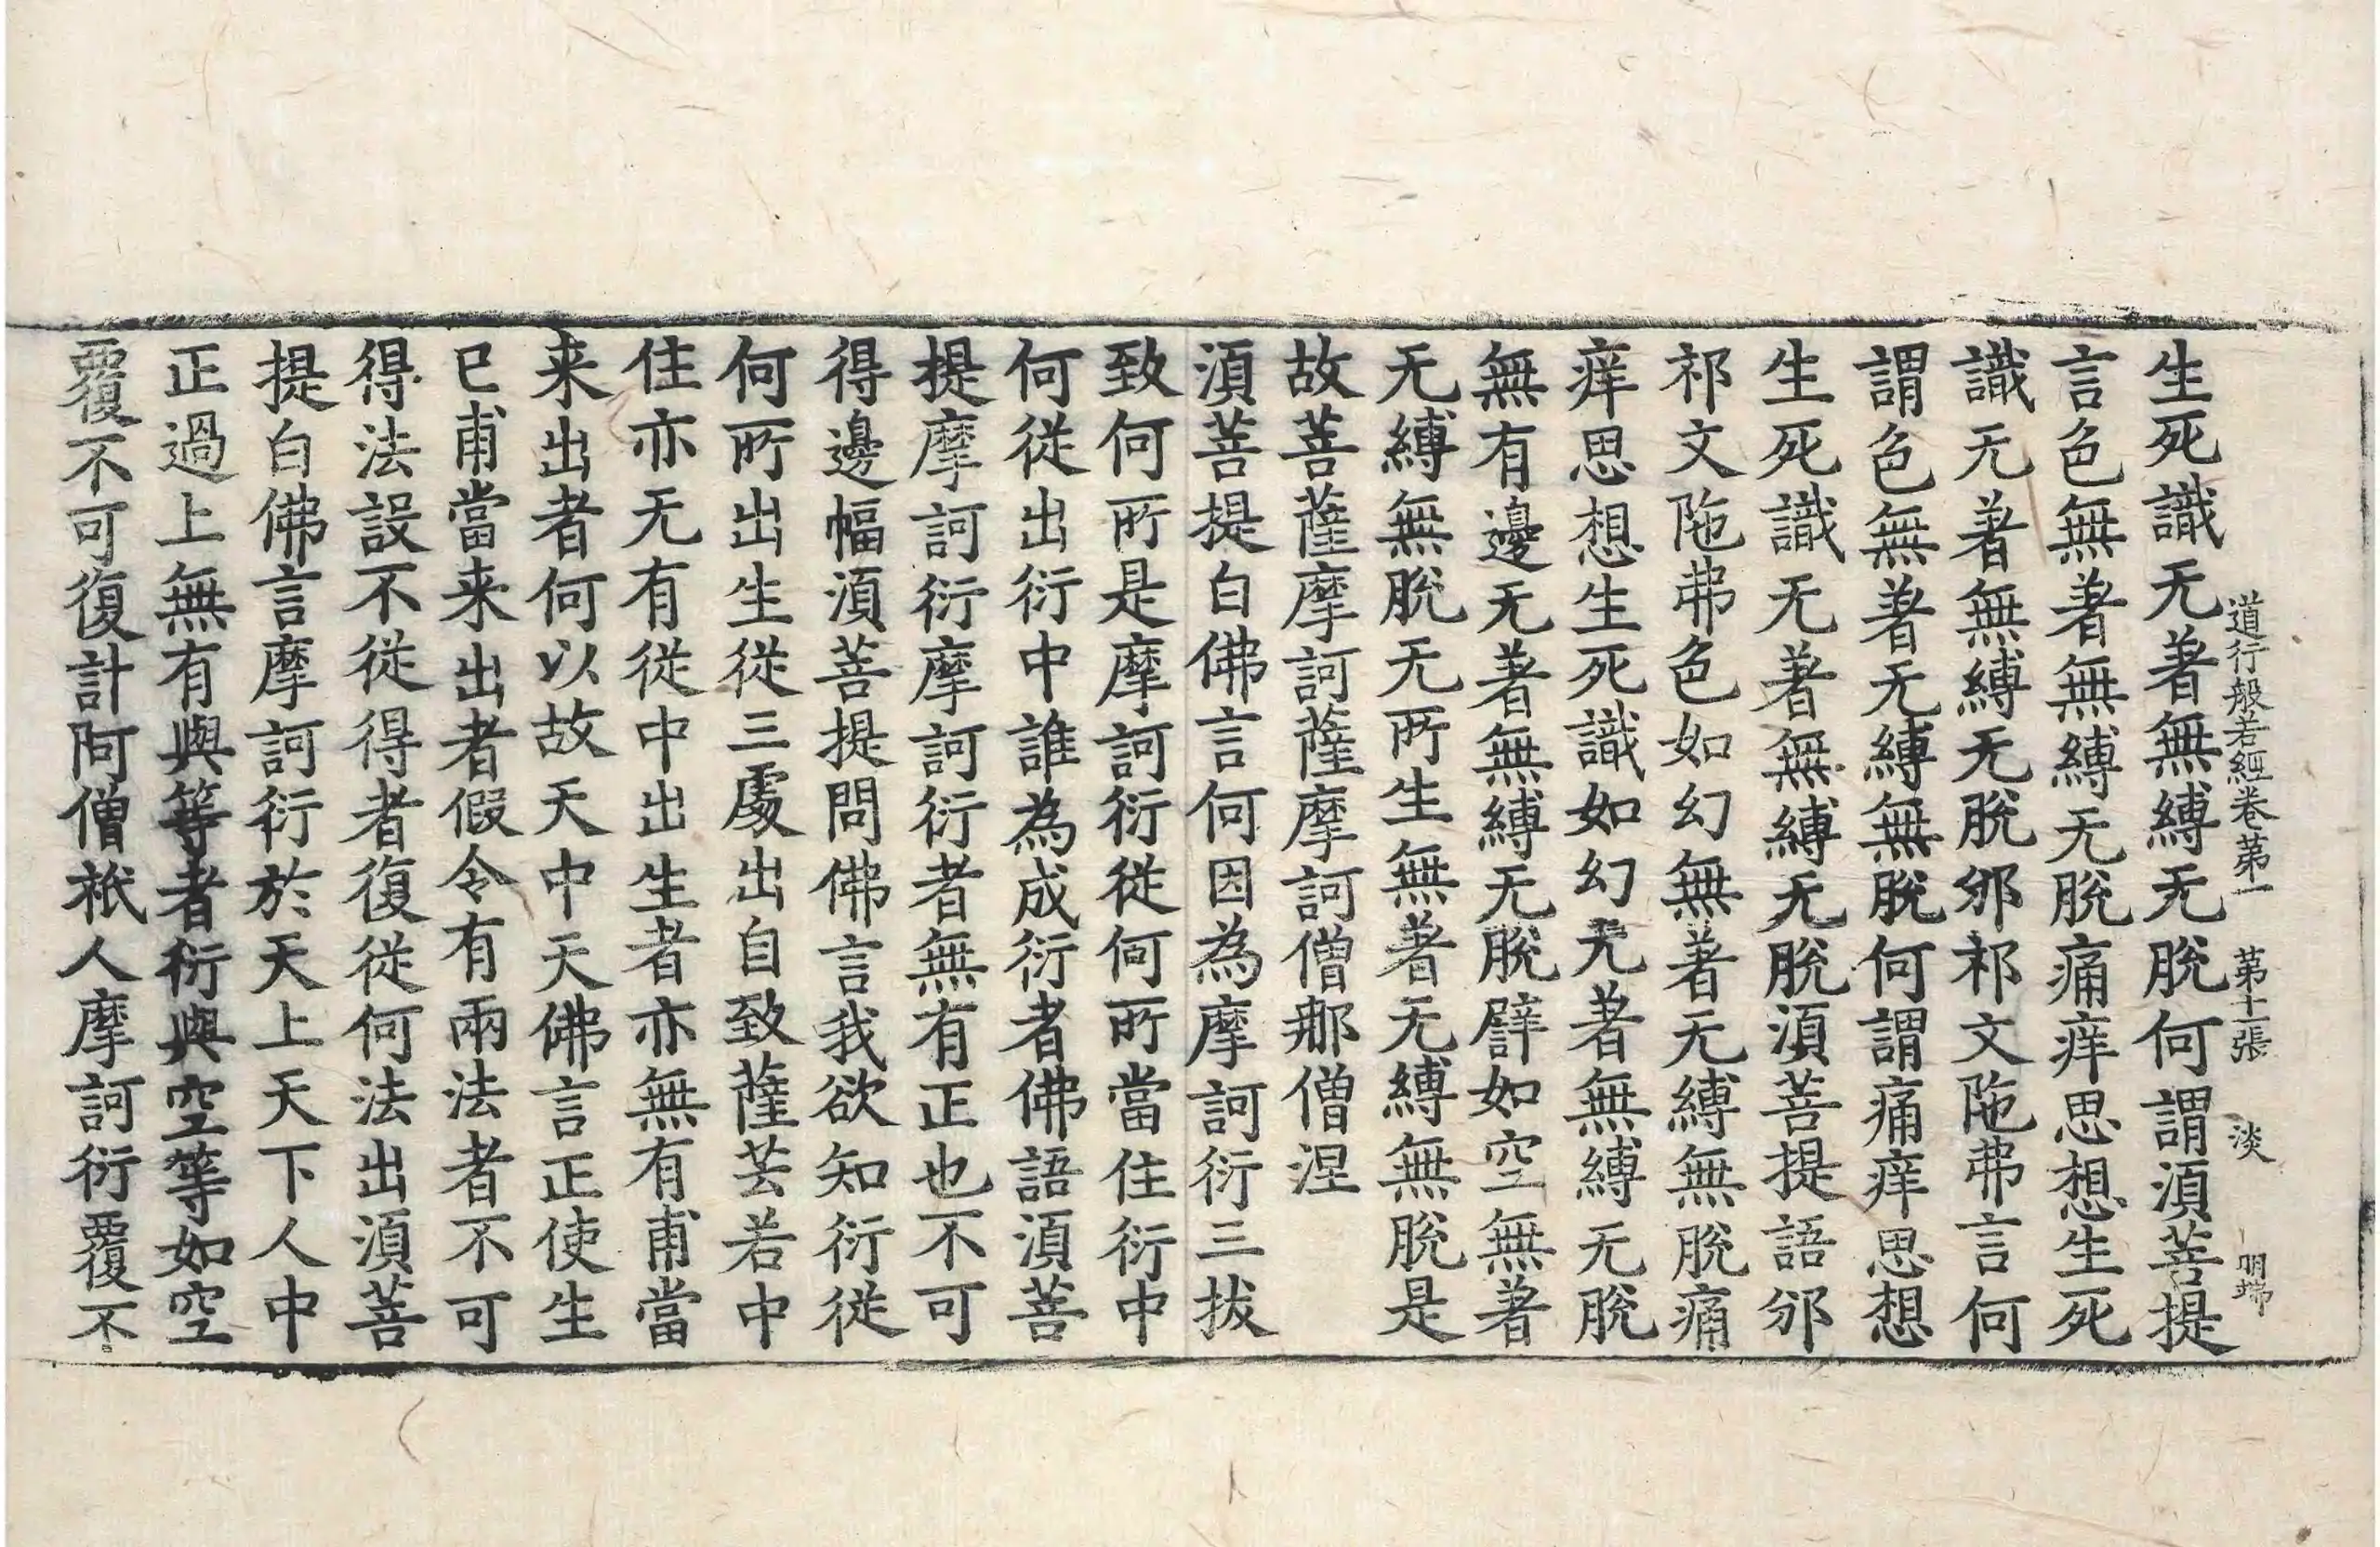 道行般若經卷第一 第十一張 淡 明瑞
生死識无著無縛无脫何謂湏菩提
言色無著無縛无脫痛痒思想生死
識无著無縛无脫邠祁文陁弗言何
謂色無著无縛無脫何謂痛痒思想
生死識无著無縛无脫湏菩提語邠
祁文陁弗色如幻無著无縛無脫痛
痒思想生死識如幻无著無縛无脫
無有邊无著無縛无脫譬如空無著
无縛無脫无所生無著无縛無脫是
故菩薩摩訶薩摩訶僧那僧涅
湏菩提白佛言何因為摩訶衍三拔
致何所是摩訶衍從何所當住衍中
何從出衍中誰為成衍者佛語湏菩
提摩訶衍摩訶衍者無有正也不可
得邊幅湏菩提問佛言我欲知衍從
何所出生從三處出自致薩芸若中
住亦无有從中出生者亦無有甫當
来出者何以故天中天佛言正使生
已甫當来出者假令有兩法者不可
得法設不從得者復從何法出湏菩
提白佛言摩訶衍於天上天下人中
正過上無有與等者衍與空等如空
覆不可復計阿僧祇人摩訶衍覆不